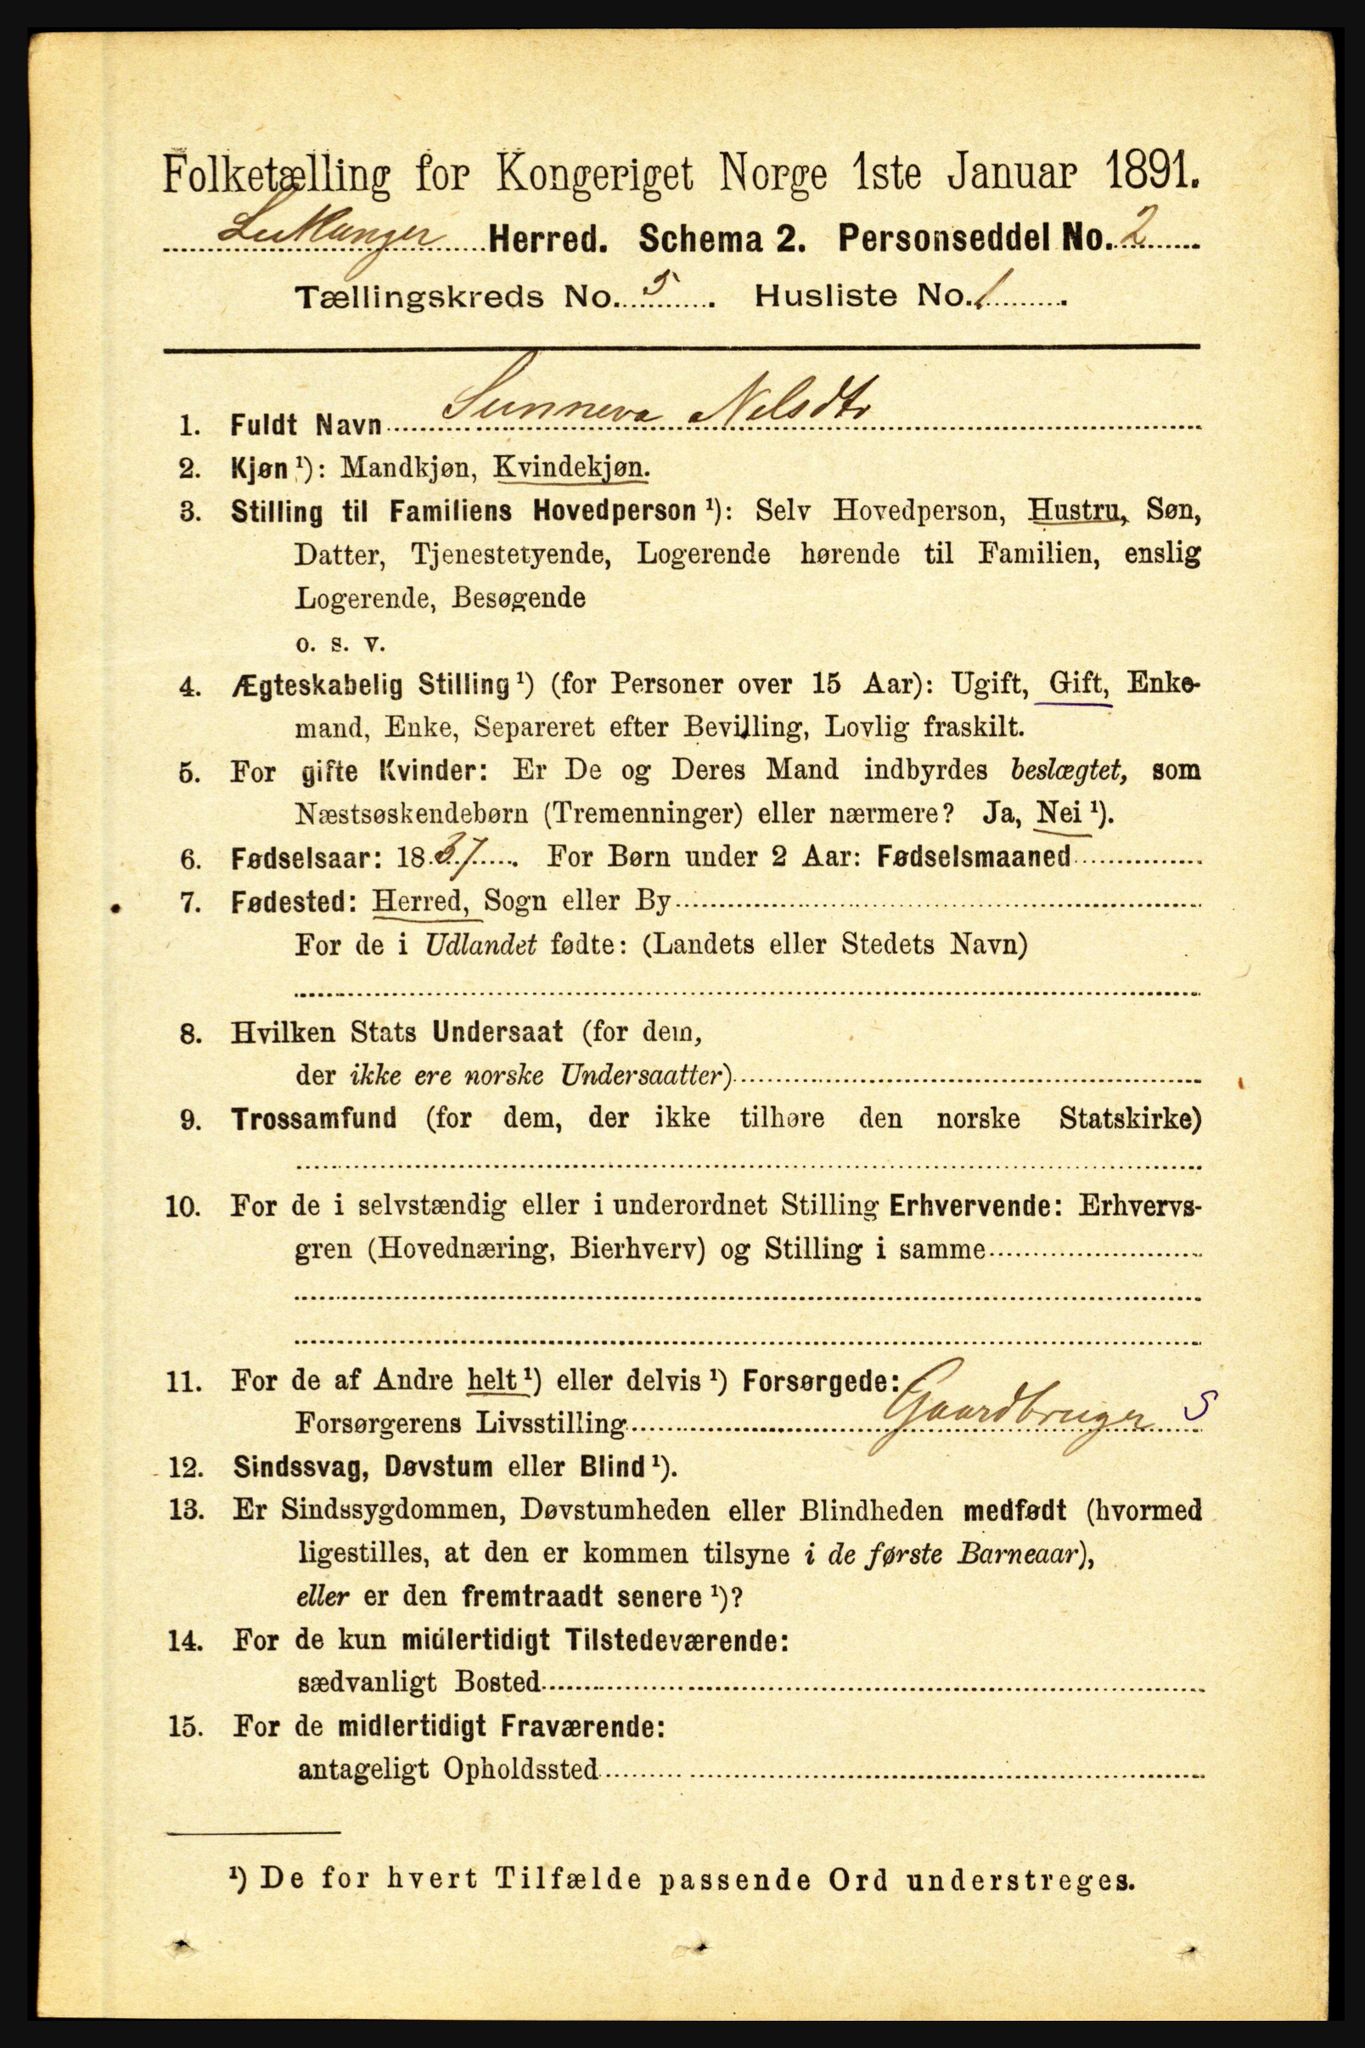 Folketælling for Kongeriget Norge 1ste Januar 1891.
Leikanger Herred. Schema 2. Personseddel No. 2
Tællingskreds No. 5. Husliste No. 1.
1. Fuldt Navn Sunneva Nelsdtr
2. Kjøn ¹): Mandkjøn, Kvindekjøn.
3. Stilling til Familiens Hovedperson ¹): Selv Hovedperson, Hustru, Søn,
Datter, Tjenestetyende, Logerende hørende til Familien, enslig
Logerende, Besøgende
o. s. v.
4. Ægteskabelig Stilling ¹) (for Personer over 15 Aar): Ugift, Gift, Enke-
mand, Enke, Separeret efter Bevilling, Lovlig fraskilt.
5. For gifte Kvinder: Er De og Deres Mand indbyrdes beslægtet, som
Næstsøskendebørn (Tremenninger) eller nærmere? Ja, Nei ¹).
6. Fødselsaar: 1837. For Børn under 2 Aar: Fødselsmaaned
7. Fødested: Herred, Sogn eller By
For de i Udlandet fødte: (Landets eller Stedets Navn)
8. Hvilken Stats Undersaat (for dem,
der ikke ere norske Undersaatter)
9. Trossamfund (for dem, der ikke tilhøre den norske Statskirke)
10. For de i selvstændig eller i underordnet Stilling Erhvervende: Erhvervs-
gren (Hovednæring, Bierhverv) og Stilling i samme
11. For de af Andre helt ¹) eller delvis ¹) Forsørgede:
Forsørgerens Livsstilling Gaardbruger S
12. Sindssvag, Døvstum eller Blind ¹).
13. Er Sindssygdommen, Døvstumheden eller Blindheden medfødt (hvormed
ligestilles, at den er kommen tilsyne i de første Barneaar),
eller er den fremtraadt senere ¹)?
14. For de kun midlertidigt Tilstedeværende:
sædvanligt Bosted
15. For de midlertidigt Fraværende:
antageligt Opholdssted
¹) De for hvert Tilfælde passende Ord understreges.